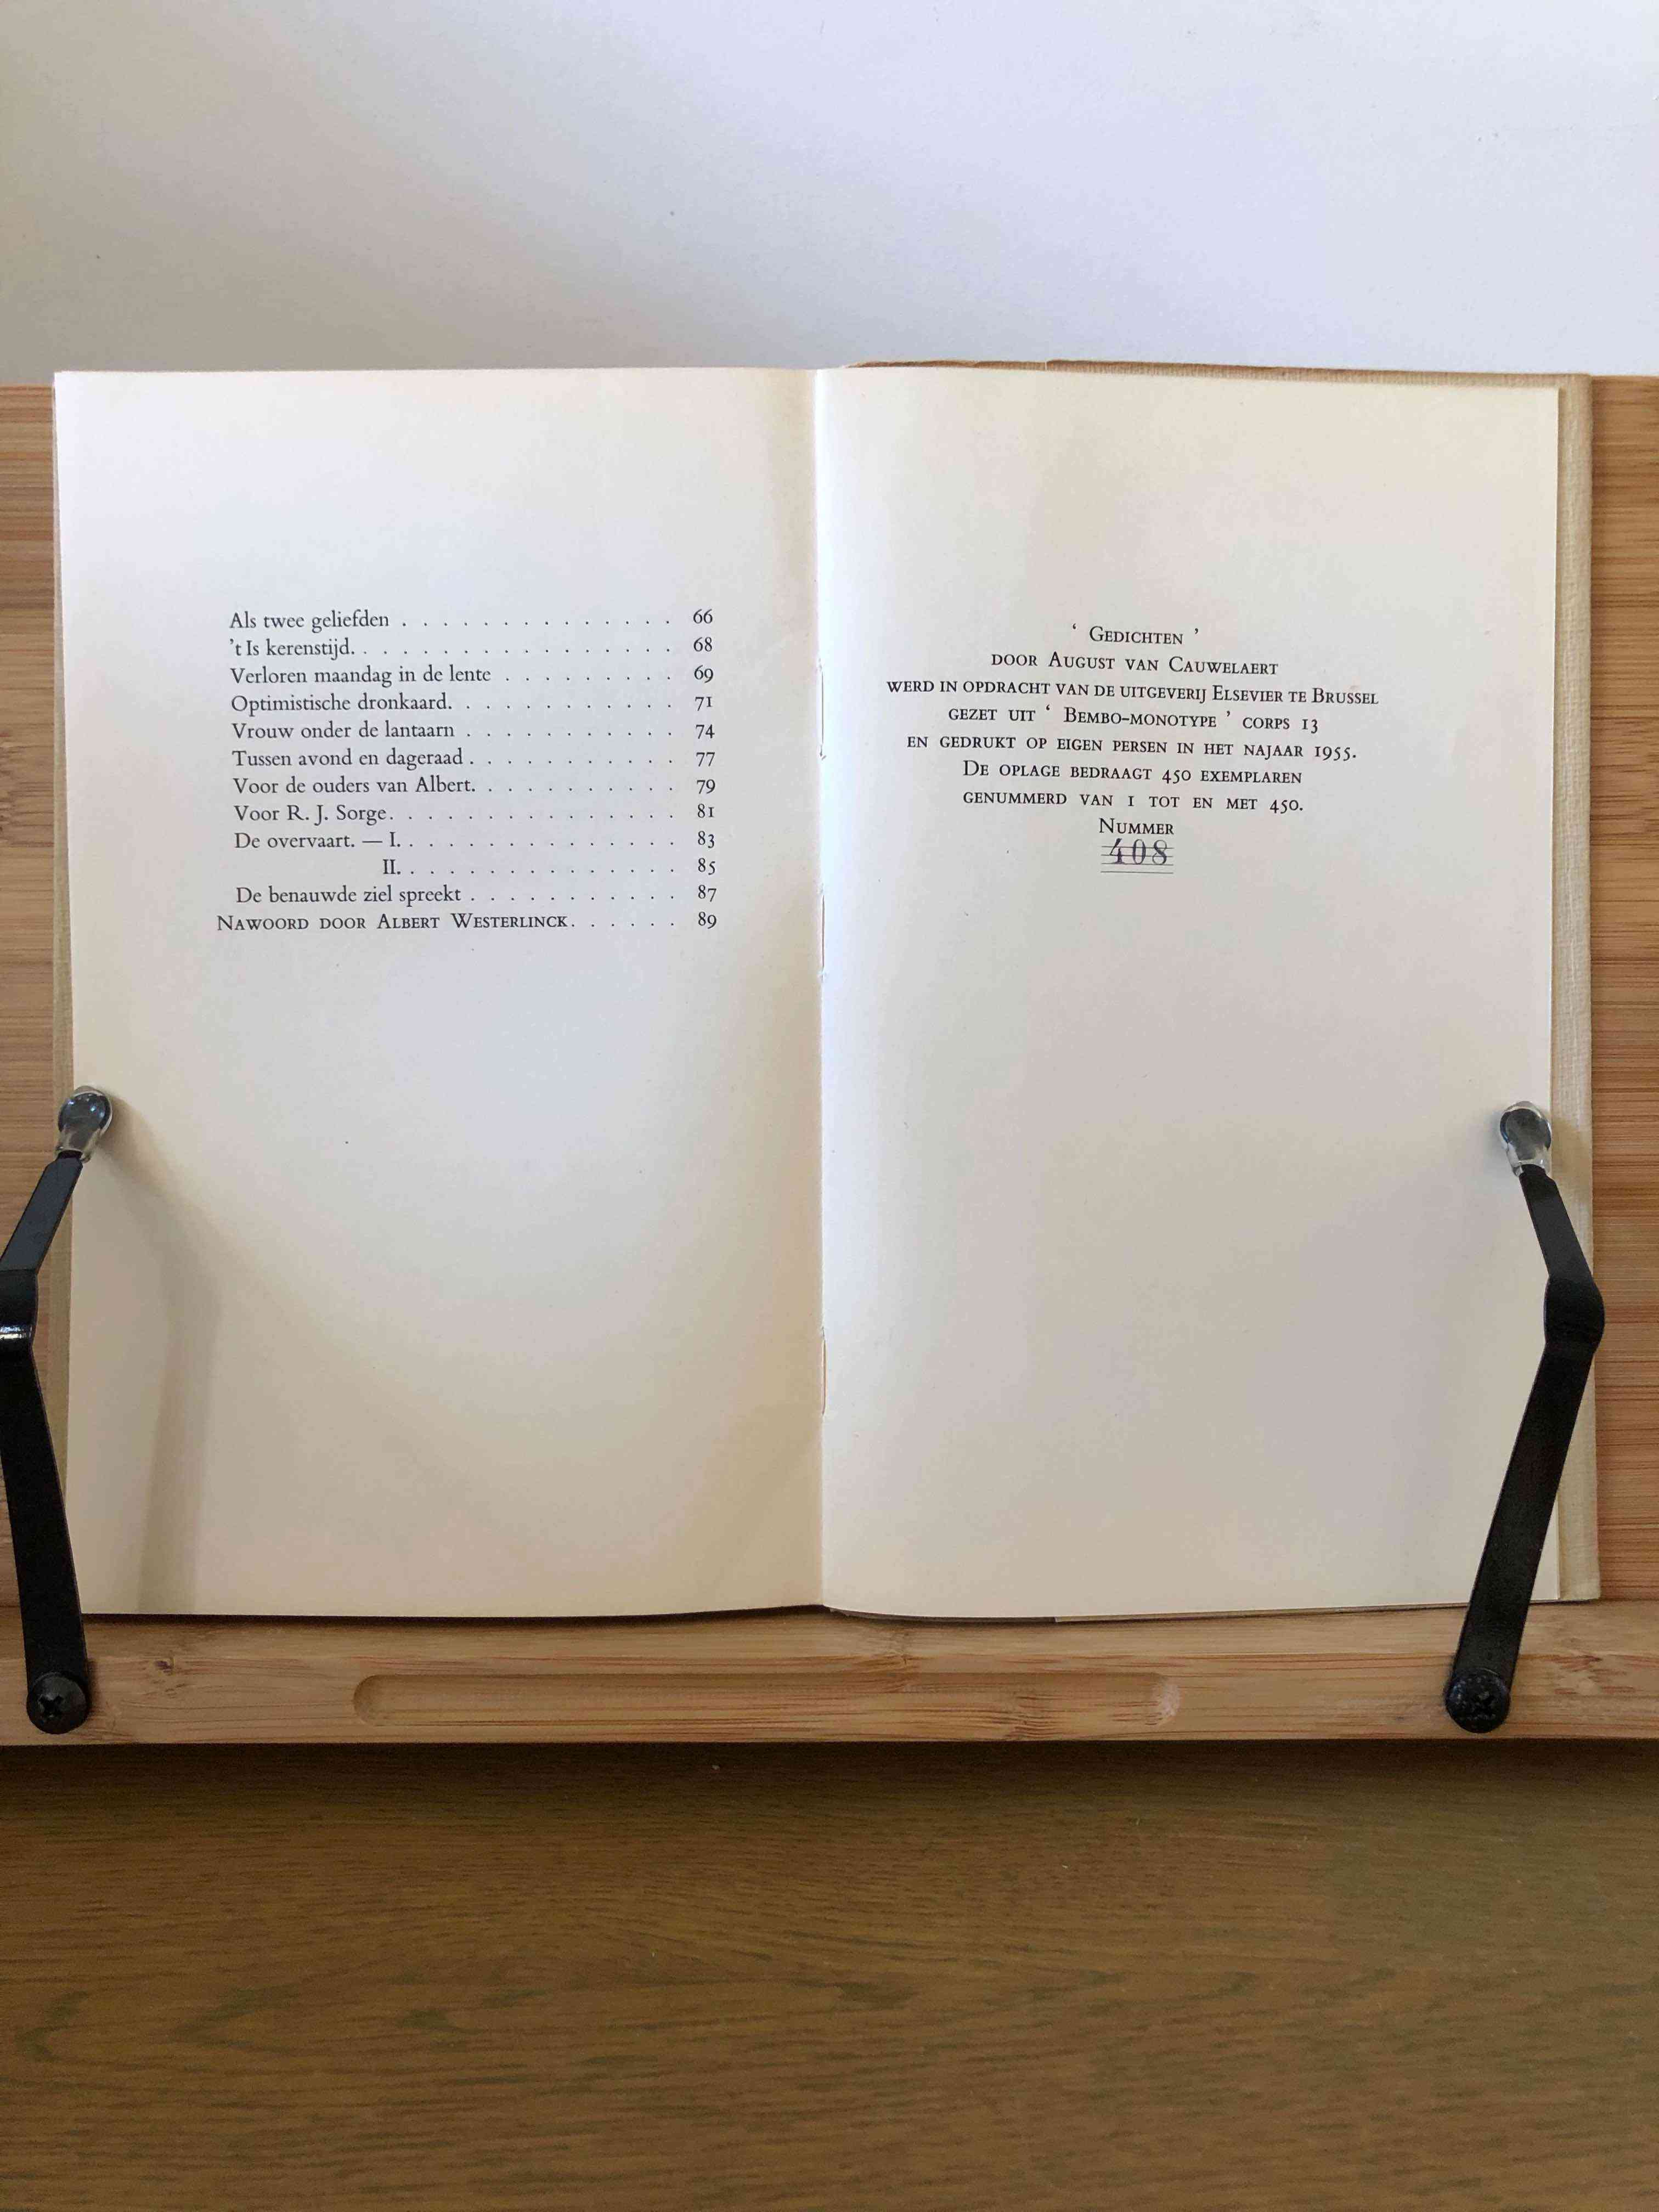 Als twee geliefden . . . . . . . . . . . . . . 66
't Is kerenstijd. . . . . . . . . . . . . . . . . 68
Verloren maandag in de lente . . . . . . . . . 69
Optimistische dronkaard. . . . . . . . . . . . 71
Vrouw onder de lantaarn . . . . . . . . . . . 74
Tussen avond en dageraad . . . . . . . . . . . 77
Voor de ouders van Albert. . . . . . . . . . . 79
Voor R. J. Sorge. . . . . . . . . . . . . . . 81
De overvaart. — I. . . . . . . . . . . . . . . 83
II. . . . . . . . . . . . . . . 85
De benauwde ziel spreekt . . . . . . . . . . . 87
Nawoord door Albert Westerlinck. . . . . . 89
‘ Gedichten ’
door August van Cauwelaert
werd in opdracht van de uitgeverij Elsevier te Brussel
gezet uit ‘ Bembo-monotype ’ corps 13
en gedrukt op eigen persen in het najaar 1955.
De oplage bedraagt 450 exemplaren
genummerd van 1 tot en met 450.
Nummer
408